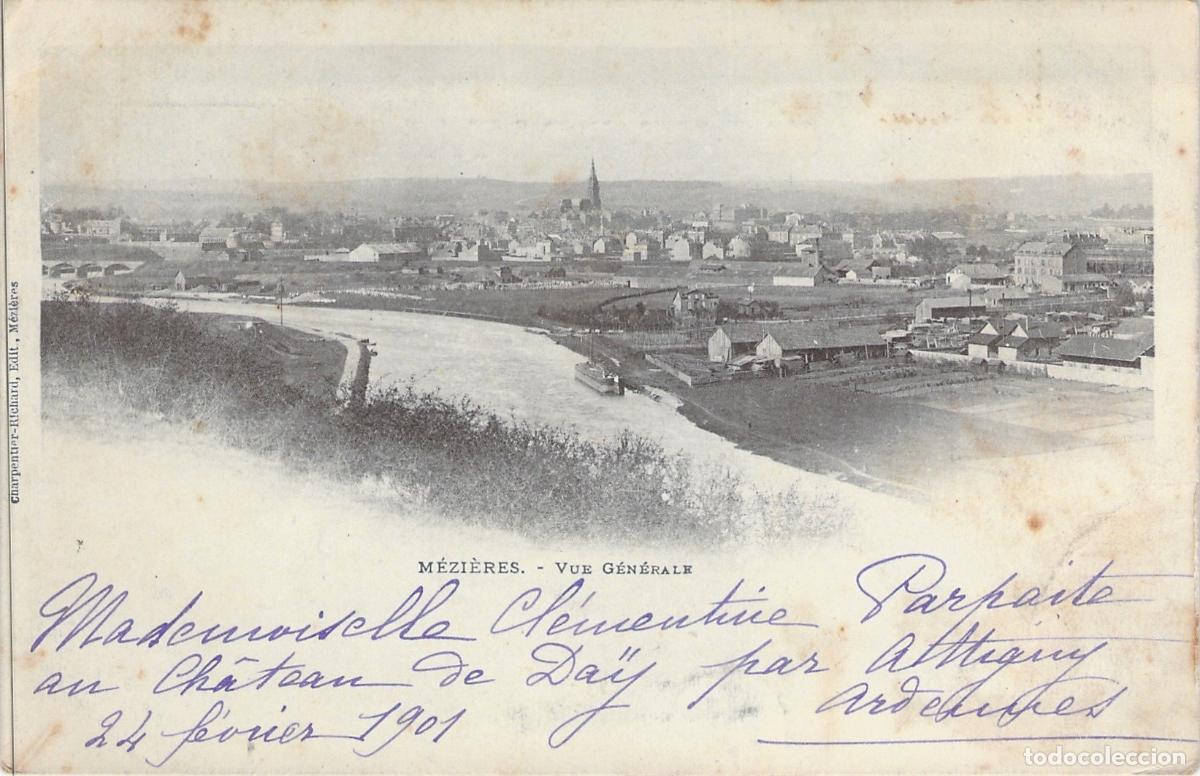 Charpentier-Richard, Edit., Mézières
MÉZIÈRES. - VUE GÉNÉRALE
Mademoiselle Clémentine Parfaite
au Château de Daÿ par Attigny
24 février 1901 Ardennes
todocoleccion